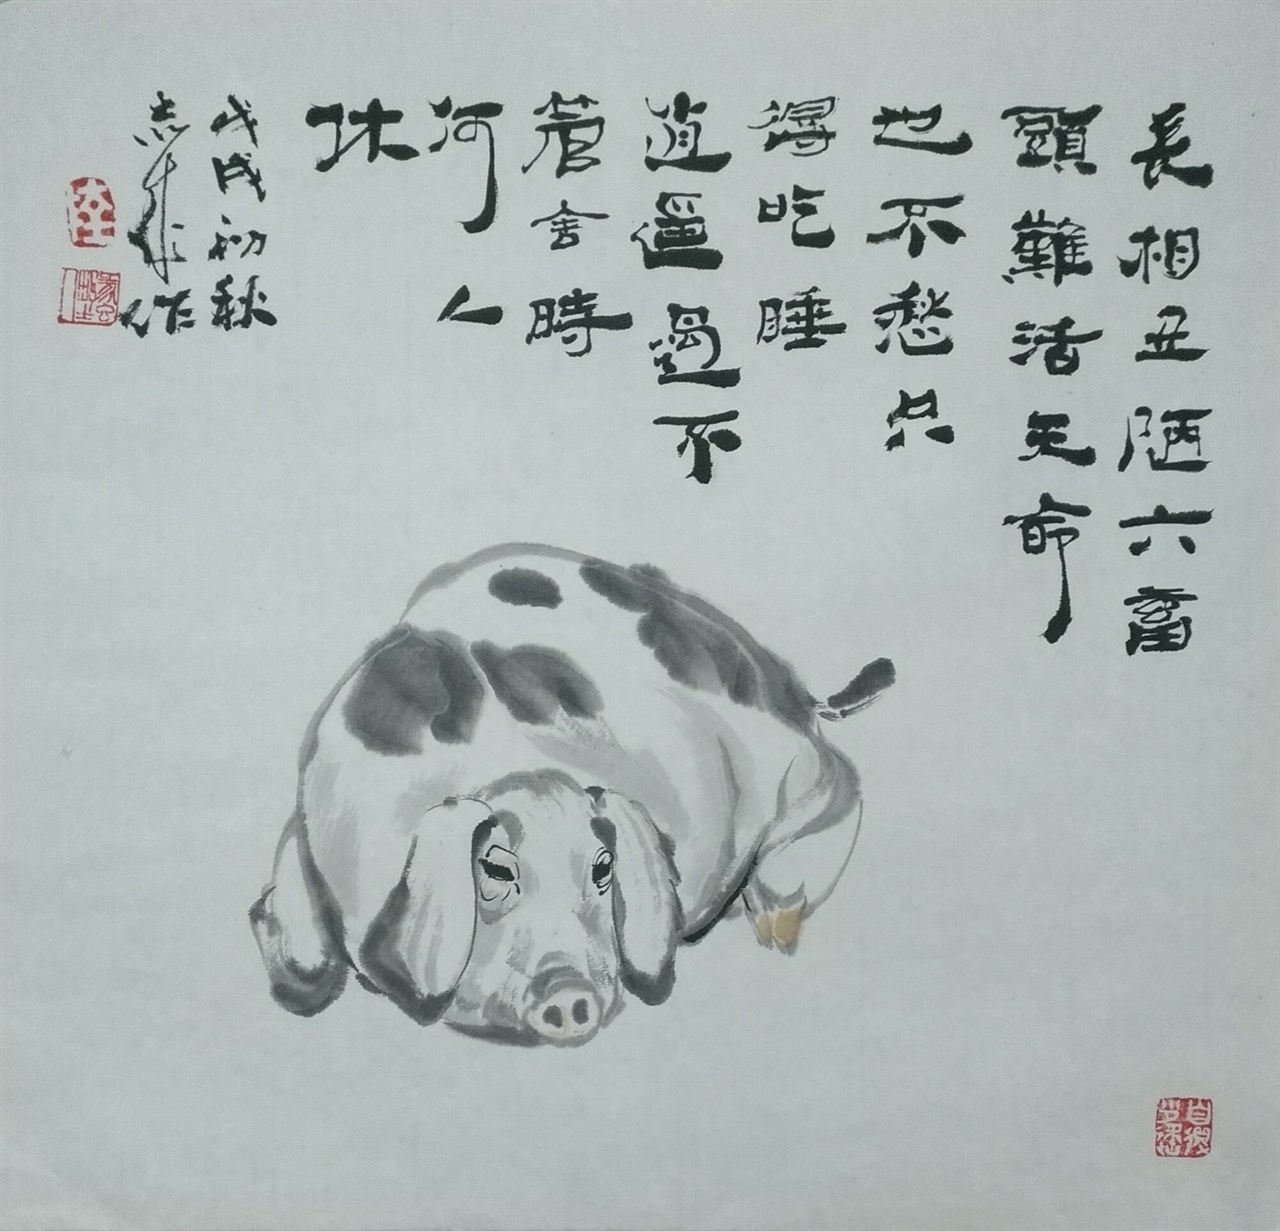 長相丑陋六畜
頭難活天命
也不愁只
得吃睡
逍遥過不
管舍時
何人
休
戊戌初秋
志作